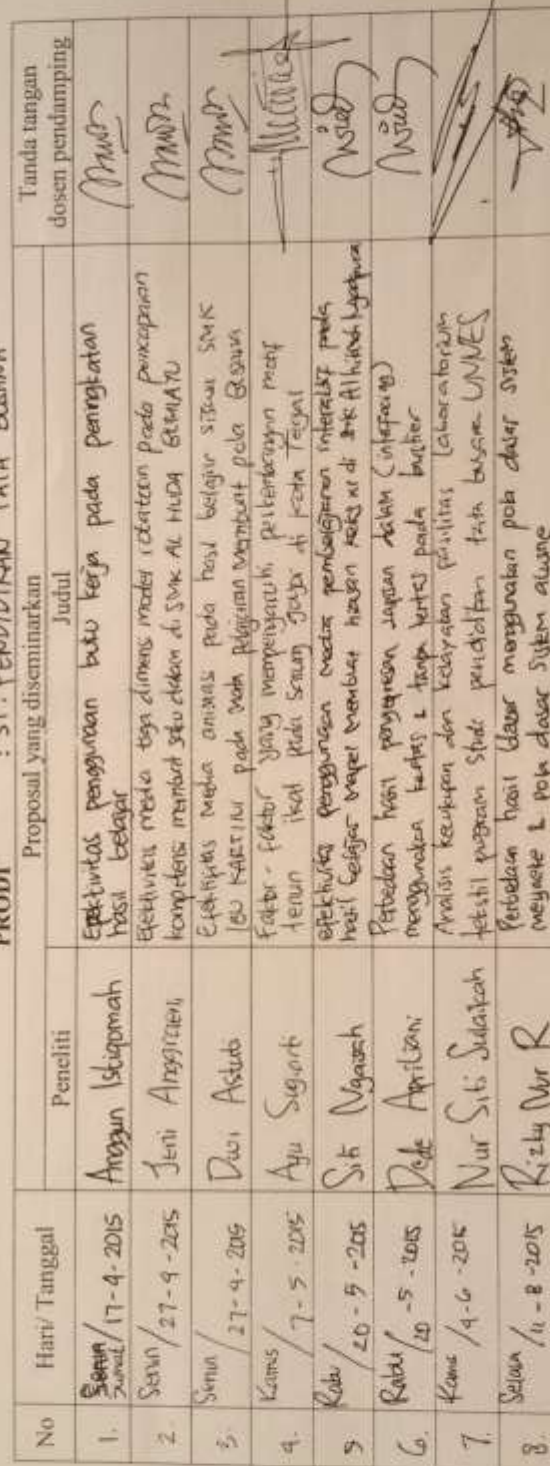 PRODI : S1. PENDIDIKAN TATA BUSANA
No
Hari/ Tanggal
Proposal yang diseminarkan
Peneliti
Judul
Tanda tangan
dosen pendamping
1. Jumat / 17-4-2015 Anggun Istiqomah
Efektivitas penggunaan buku kerja pada peningkatan
hasil belajar
2. Senin / 27-4-2015 Jeni Anggraeni
Efektivitas media tiga dimensi model rotation pada pencapaian
kompetensi membuat saku dalam di SMK AL HUDA BUMIAYU
3. Senin / 27-4-2015 Dwi Astuti
Efektifitas media animasi pada hasil belajar siswa SMK
IBU KARTINI pada mata pelajaran membuat pola busana
4. Kamis / 7-5-2015 Ayu Sugiarti
Faktor-faktor yang mempengaruhi perkembangan motif
tenun ikat pada sarung goyor di kota Tegal
5 Rabu / 20-5-2015 Siti Ngaisah
Efektivitas penggunaan media pembelajaran interaktif pada
hasil belajar mapel membuat hiasan kelas XI di SMK Al hikmah
6. Rabu / 20-5-2015 Dede Apriliani
Perbedaan hasil pengepresan lapisan dalam (interfacing)
menggunakan kertas & tanpa kertas pada bustier
7. Kamis / 4-6-2015 Nur Siti Sulaikah
Analisis kecukupan dan kelayakan fasilitas laboratorium
tekstil program studi pendidikan tata busana UNNES
8. Selasa / 11-8-2015 Rizky Nur R
Perbedaan hasil blazer menggunakan pola dasar sistem
meyneke & pola dasar sistem